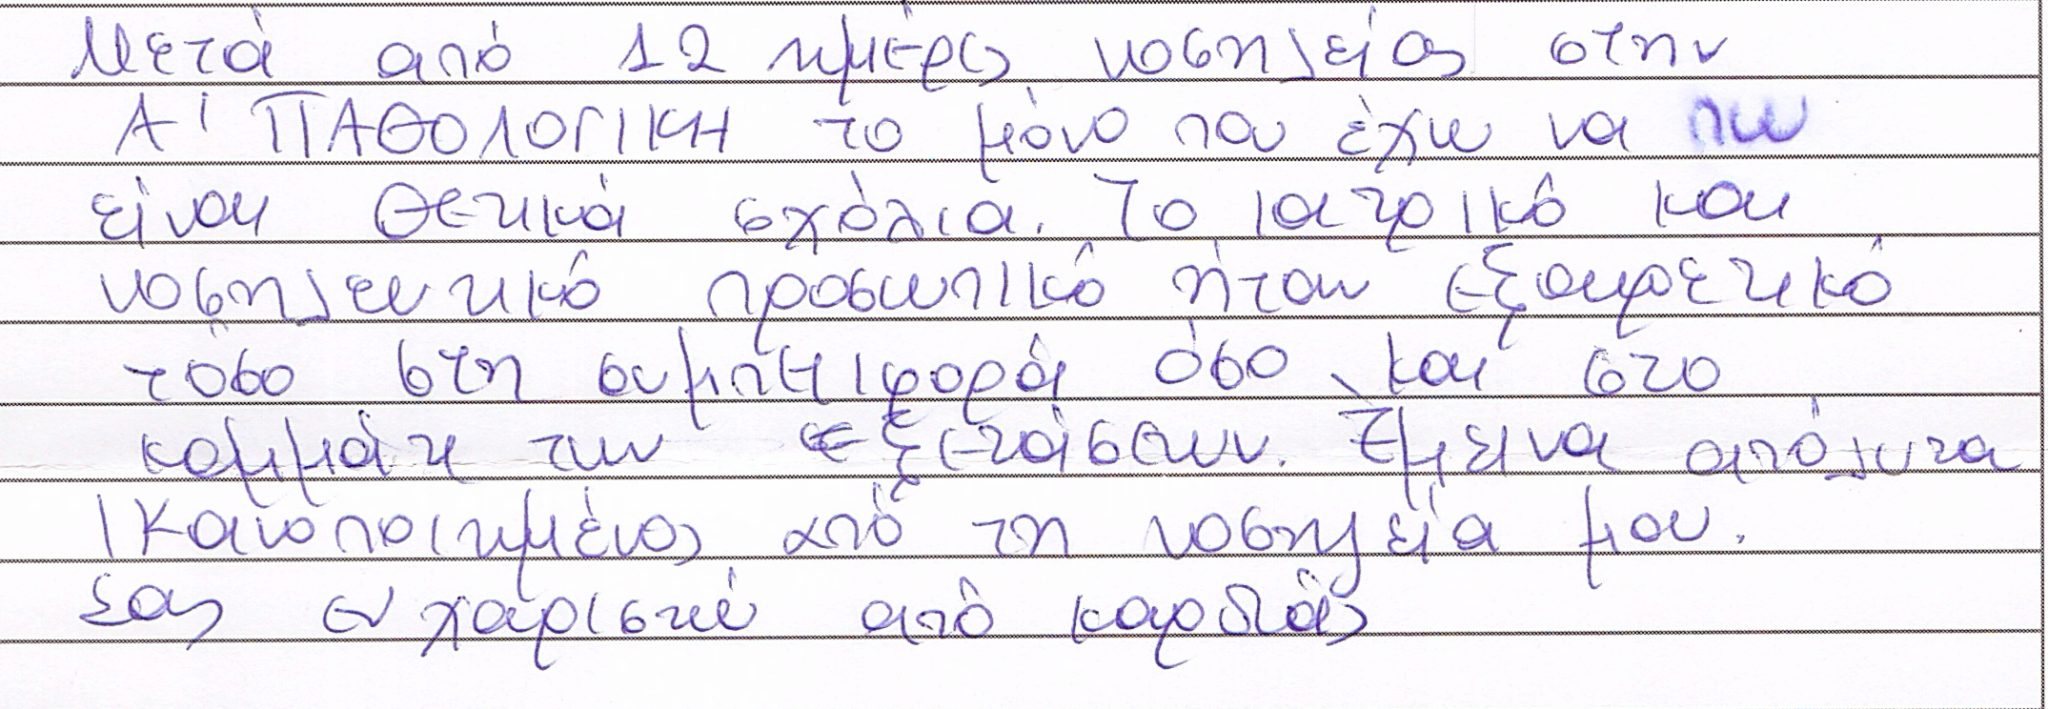 Μετά από 12 ημέρες νοσηλείας στην
Α' ΠΑΘΟΛΟΓΙΚΗ το μόνο που έχω να πω
είναι θετικά σχόλια. Το ιατρικό και
νοσηλευτικό προσωπικό ήταν εξαιρετικό
τόσο στη συμπεριφορά όσο και στο
κομμάτι των εξετάσεων. Έμεινα απόλυτα
ικανοποιημένος από τη νοσηλεία μου.
Σας ευχαριστώ από καρδιάς